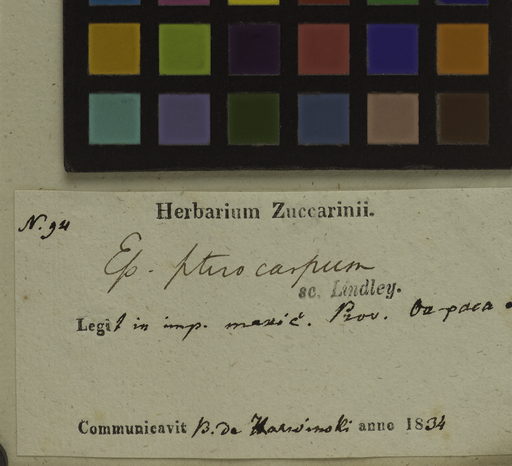 Herbarium Zuccarinii.
N. 94
Ep. pterocarpum
sc. Lindley.
Legit in imp. mexic. Prov. Oaxaca
Communicavit B. de Karwinski anno 1834